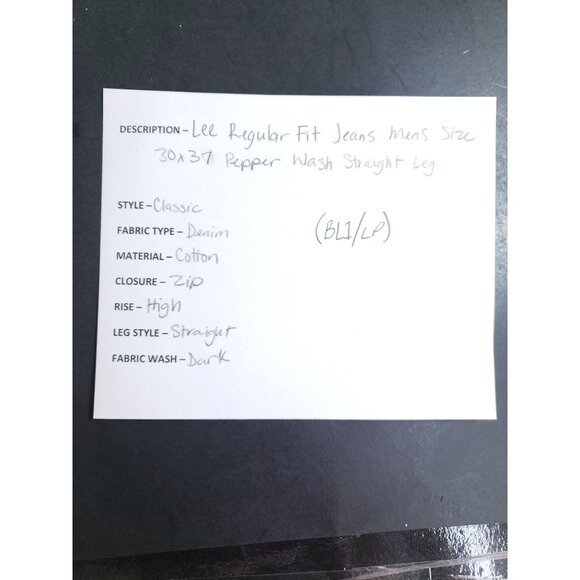 DESCRIPTION - Lee Regular Fit Jeans Mens Size
30x37 Pepper Wash Straight Leg
STYLE - Classic
FABRIC TYPE - Denim
(BL1/LP)
MATERIAL - Cotton
CLOSURE - Zip
RISE - High
LEG STYLE - Straight
FABRIC WASH - Dark